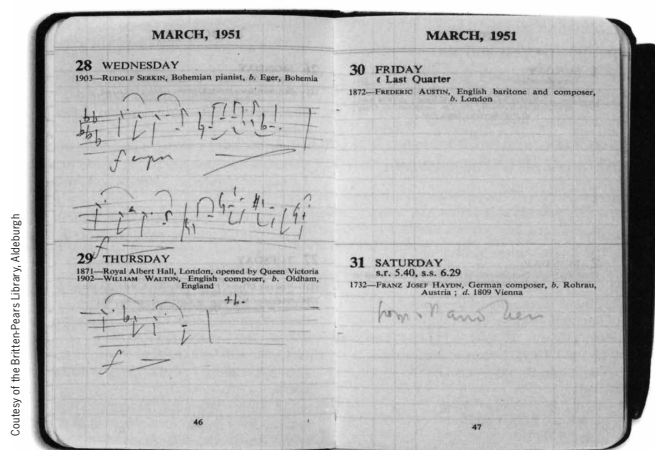 Coutesy of the Britten-Pears Library, Aldeburgh
MARCH, 1951
28 WEDNESDAY
1903—RUDOLF SERKIN, Bohemian pianist, b. Eger, Bohemia
f
f
29 THURSDAY
1871—Royal Albert Hall, London, opened by Queen Victoria
1902—WILLIAM WALTON, English composer, b. Oldham,
England
f
46
MARCH, 1951
30 FRIDAY
Last Quarter
1872—FREDERIC AUSTIN, English baritone and composer,
b. London
31 SATURDAY
s.r. 5.40, s.s. 6.29
1732—FRANZ JOSEF HAYDN, German composer, b. Rohrau,
Austria ; d. 1809 Vienna
47